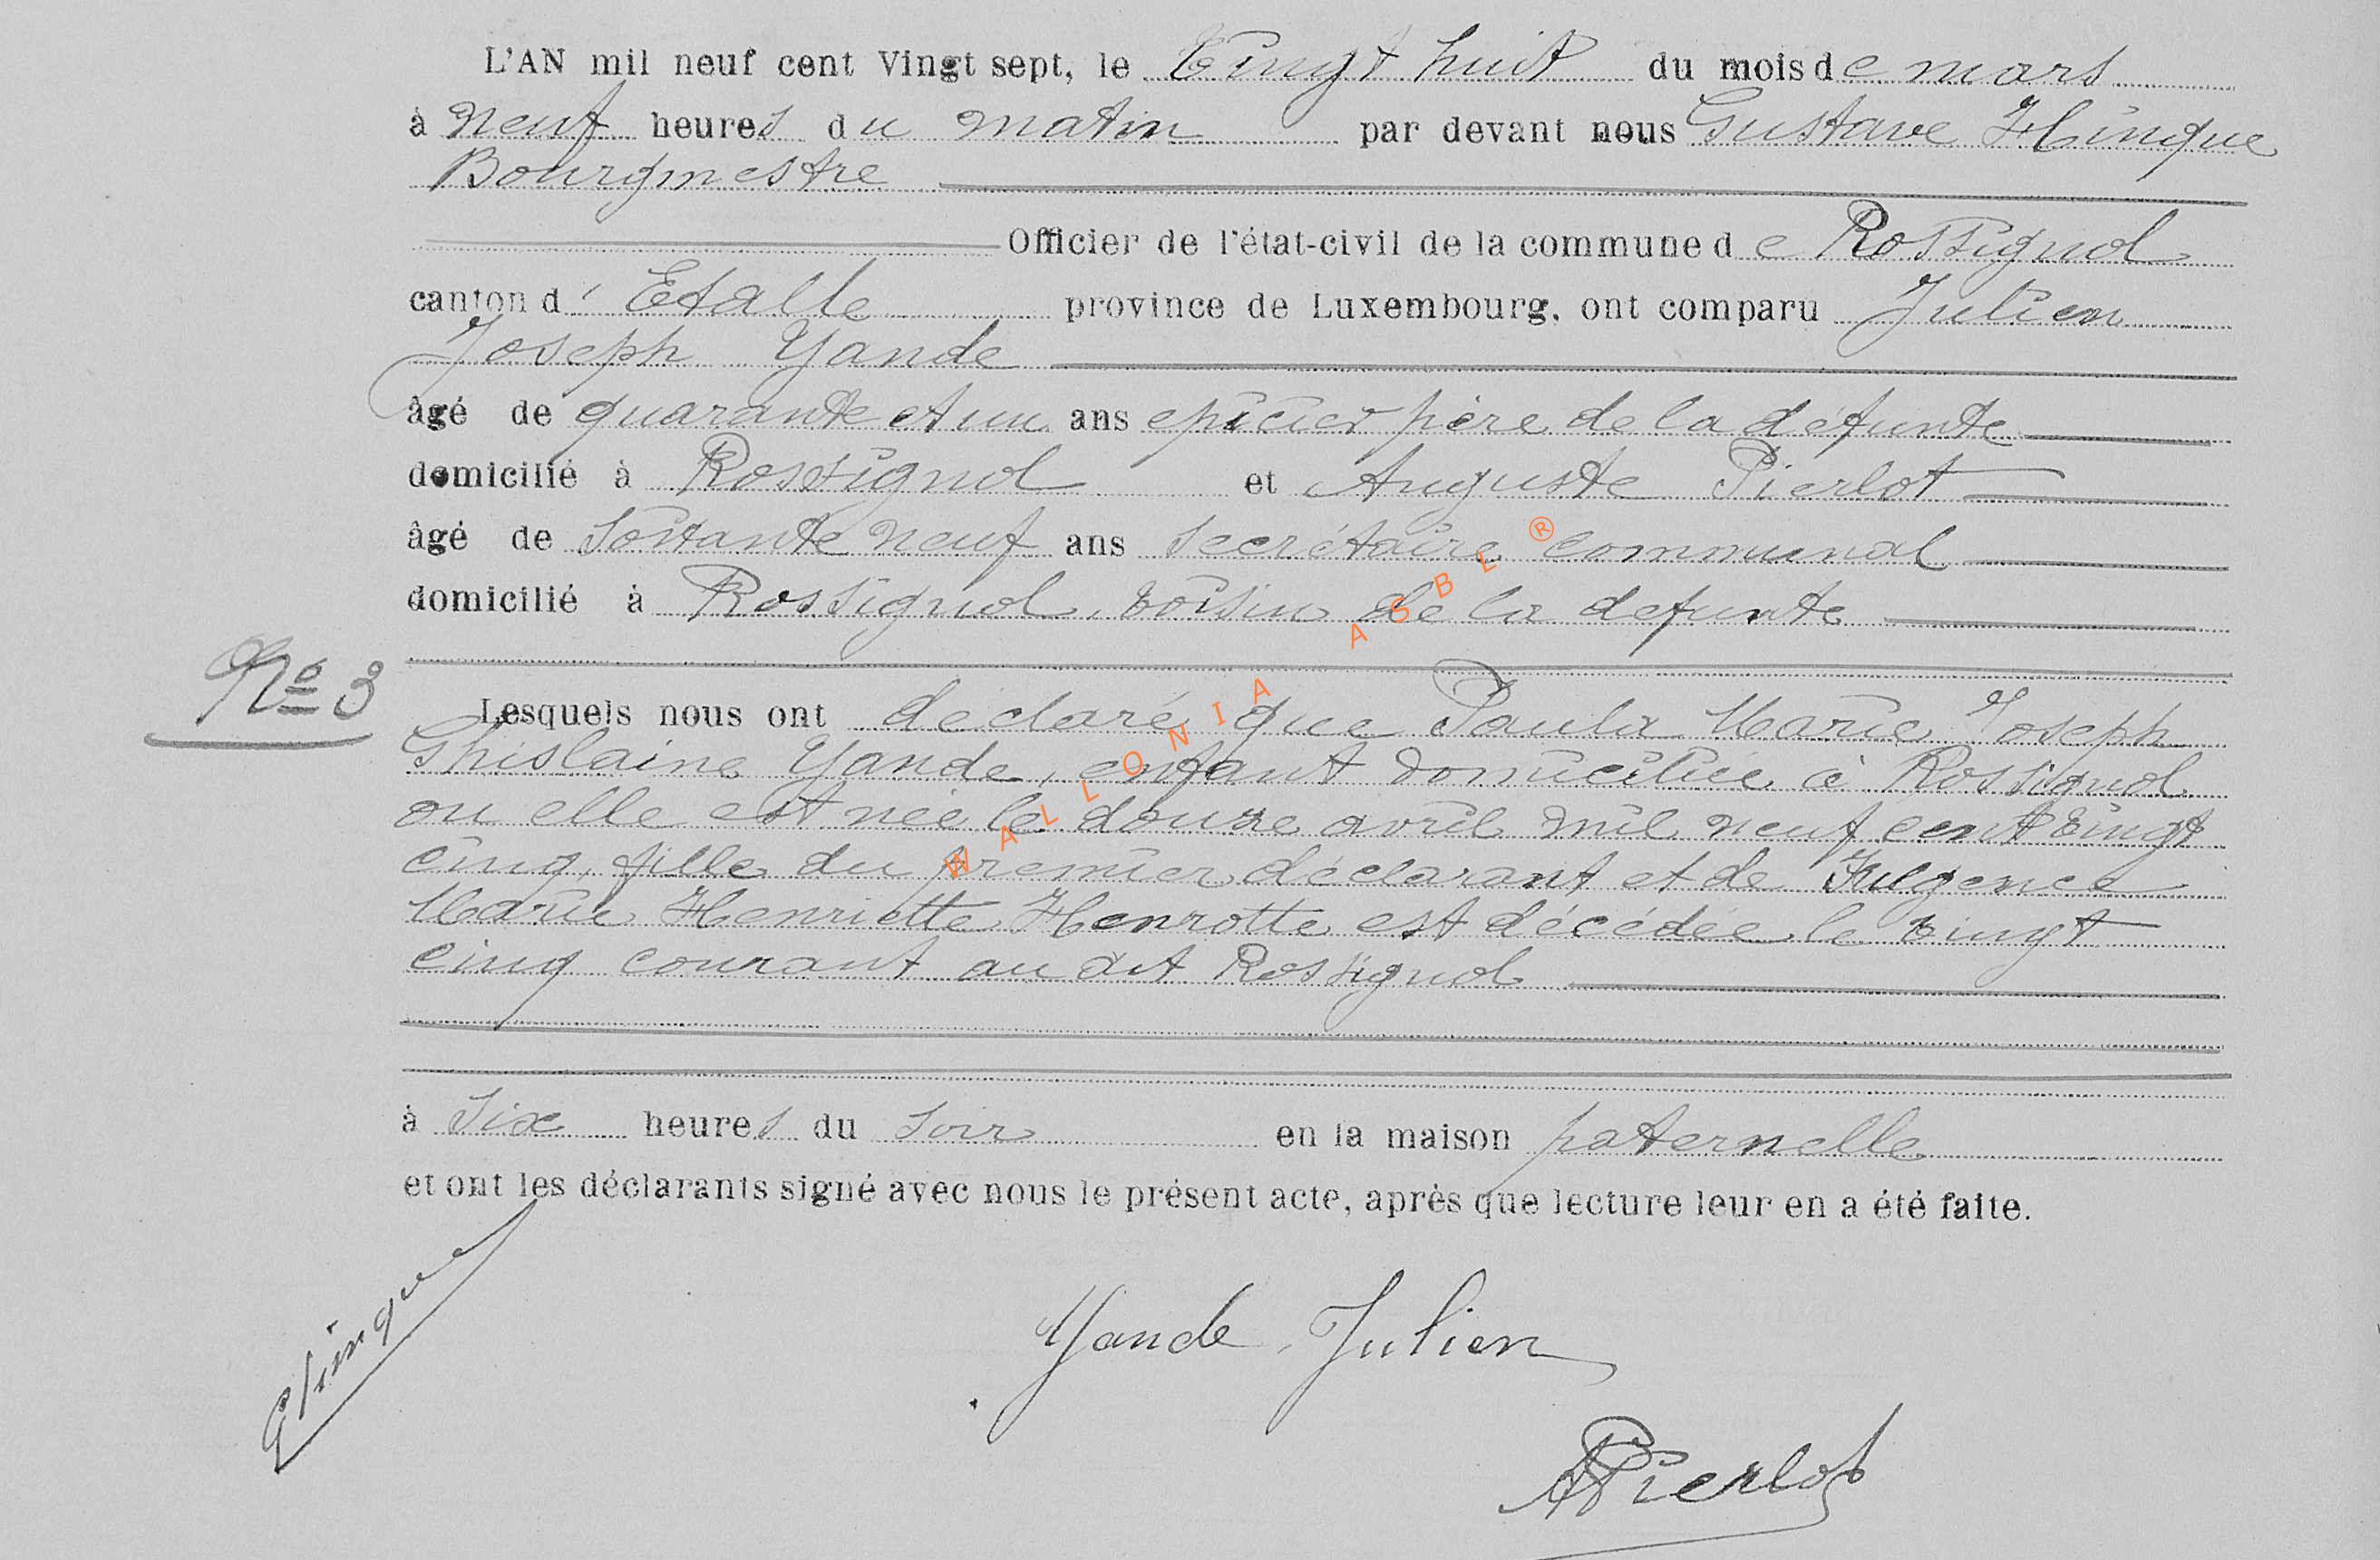 L'AN mil neuf cent Vingt sept, le Vingt huit du mois de mars
à neuf heures du matin par devant nous Gustave Hinque
Bourgmestre
Officier de l'état-civil de la commune de Rossignol
canton d'Etalle province de Luxembourg, ont comparu Julien
Joseph Yande
âgé de quarante et un ans epicier père de la défunte
domicilié à Rossignol et Auguste Pierlot
âgé de soixante neuf ans secrétaire communal
domicilié à Rossignol, voisin de la defunte
No 3
Lesquels nous ont déclaré que Paula Marie Joseph
Ghislaine Yande, enfant domiciliée à Rossignol
ou elle est née le douze avril mil neuf cent vingt
cinq, fille du premier déclarant et de Fulgence
Marie Henriette Henrotte est décédée le vingt
cinq courant au dit Rossignol
à six heures du soir en la maison paternelle
et ont les déclarants signé avec nous le présent acte, après que lecture leur en a été faite.
GHinque
Yande Julien
APierlot
WALLONIA ASBL ®